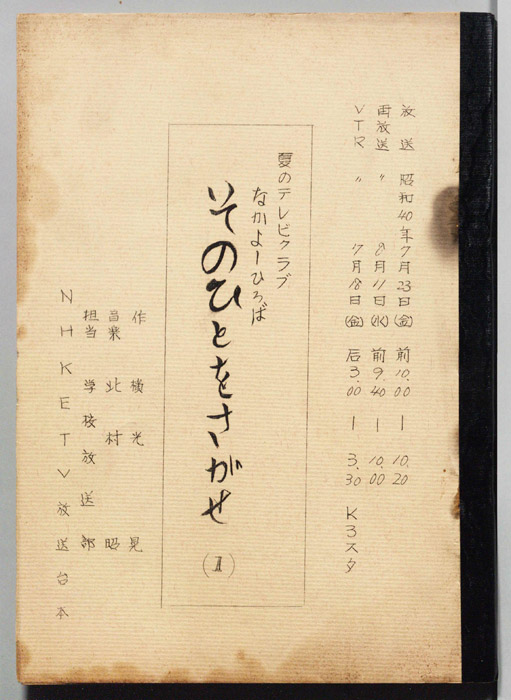 放送 昭和40年7月23日(金) 前10.00ー10.20
再放送 〃 8月11日(水) 前9.40ー10.00
VTR 〃 7月18日(金) 后3.00ー3.30 K3スタ
夏のテレビクラブ
なかよーひろば
そのひとをさがせ
(1)
作 横光 晃
音楽 北村 昭
担当 学校放送部
NHKETV放送台本